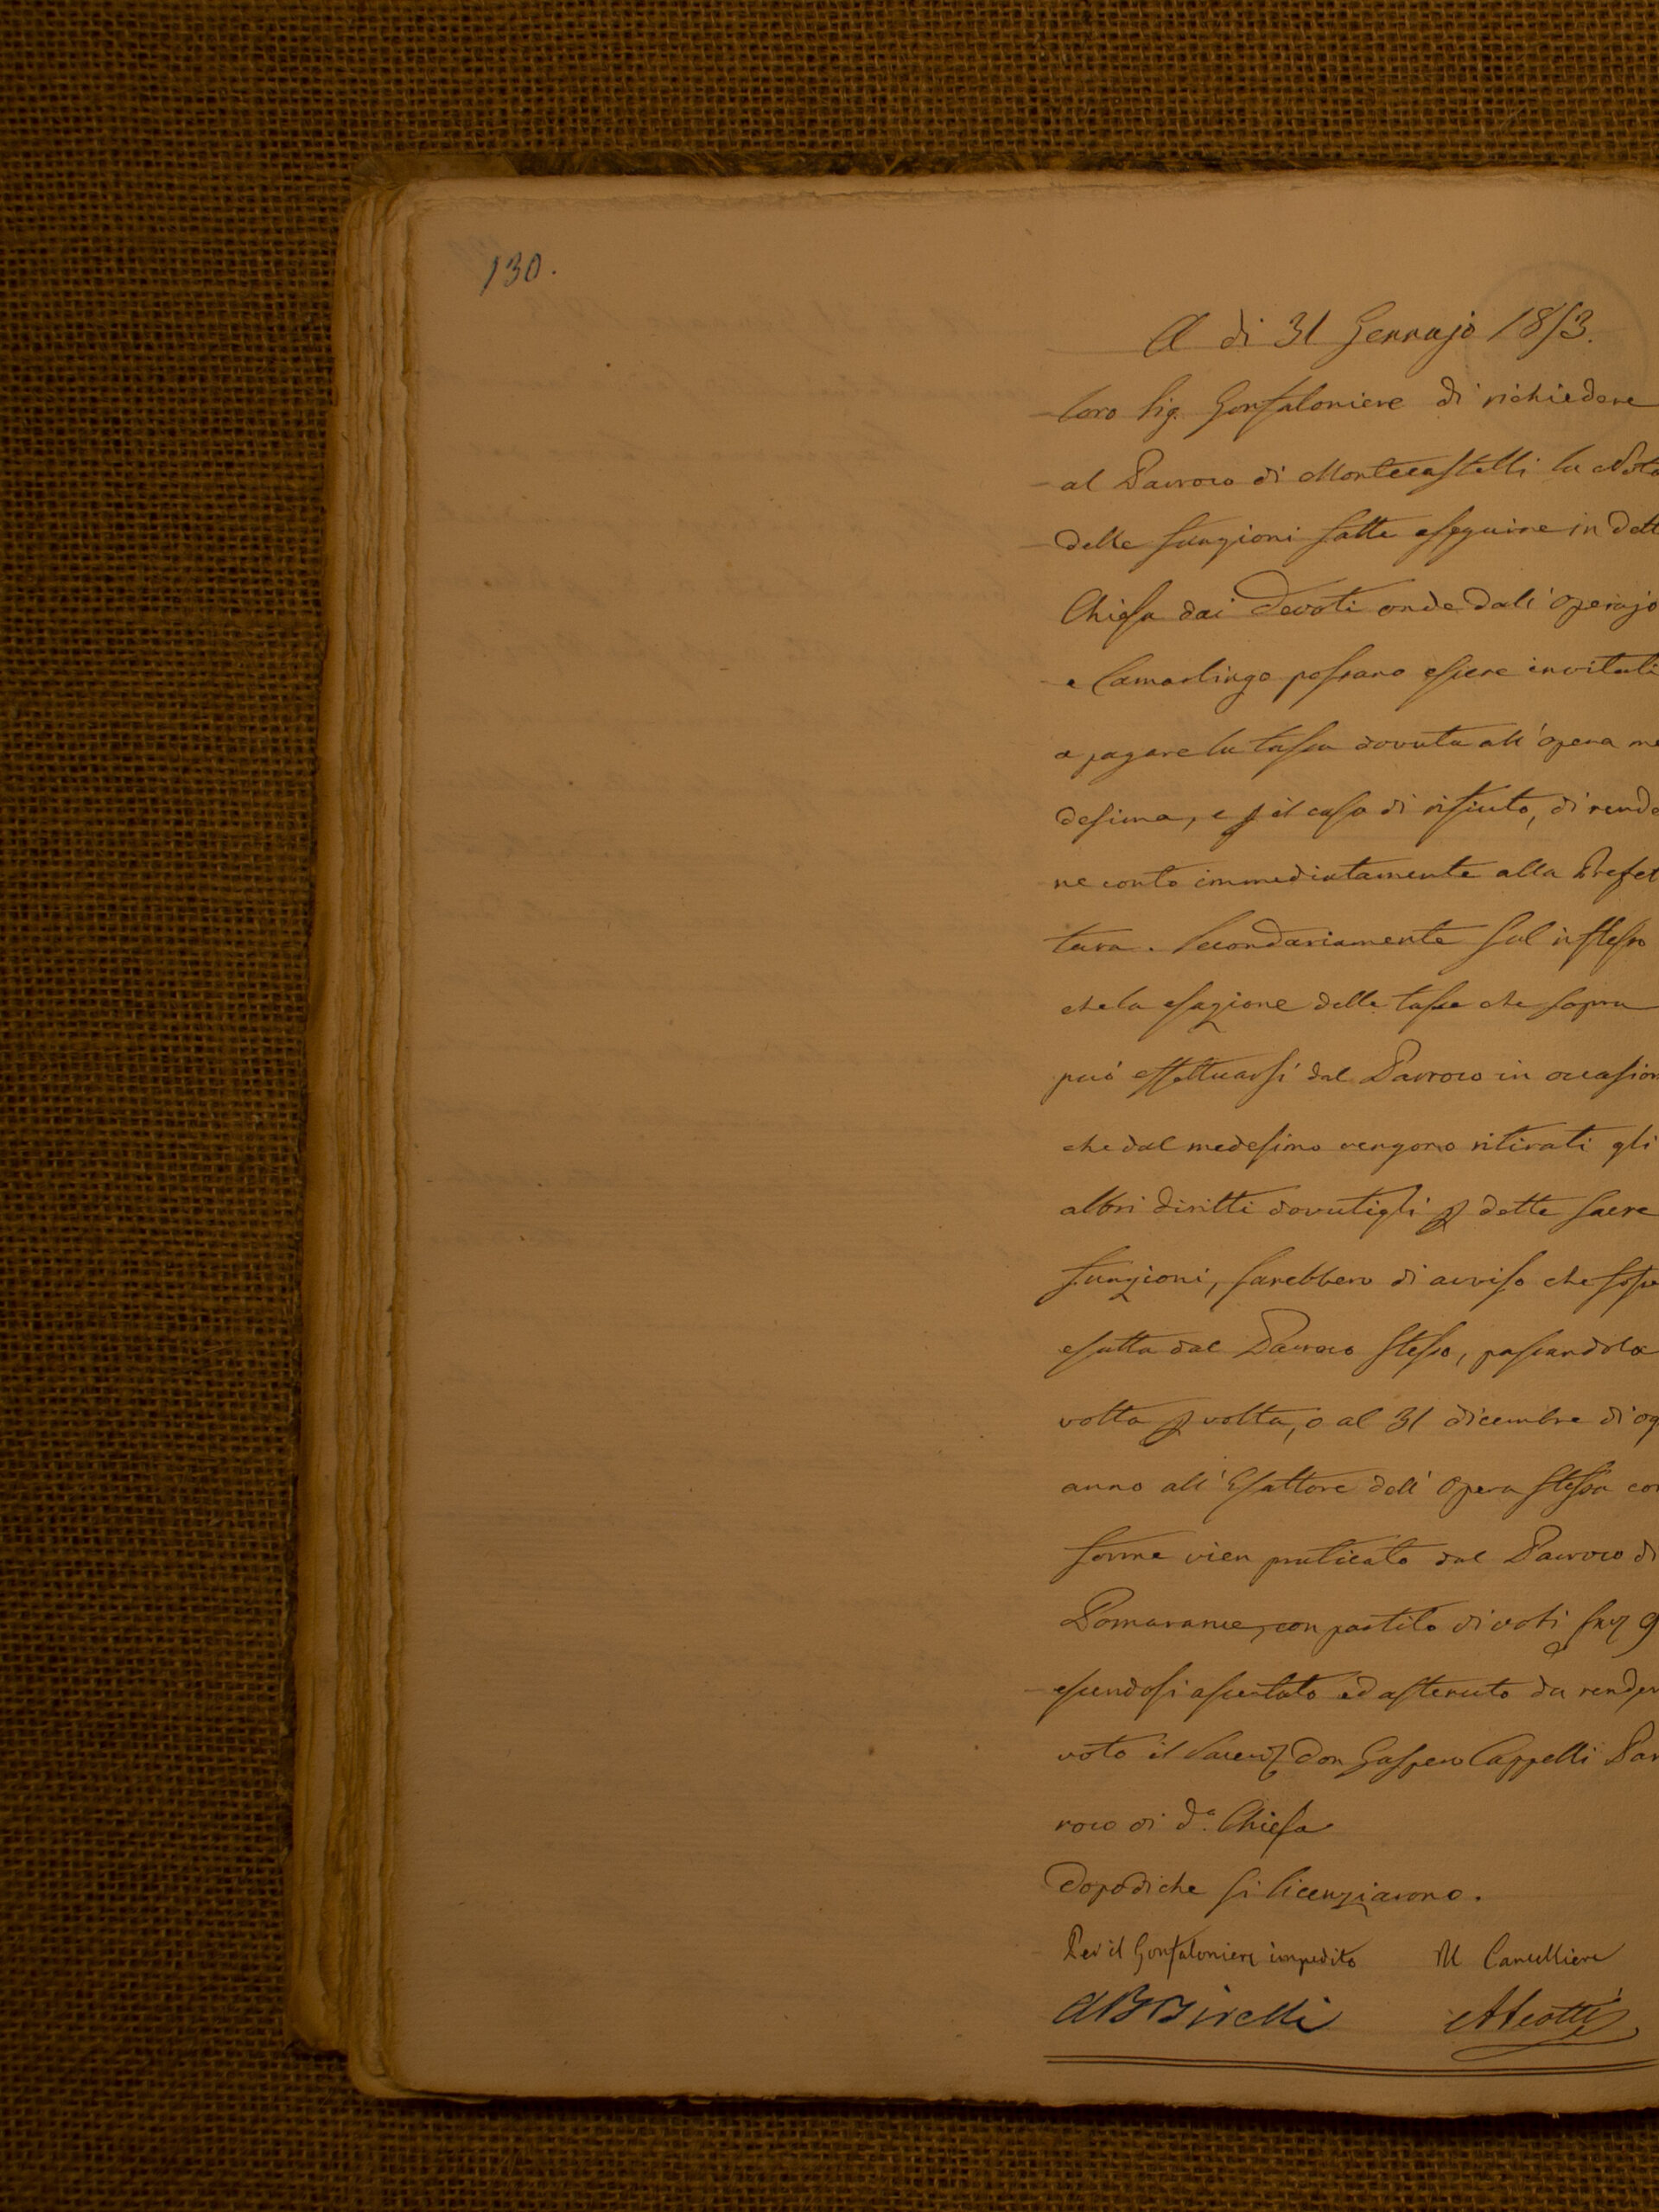 130.
A di 31 Gennajo 1853.
loro Sig. Gonfaloniere di richiedere
al Parroco di Montecastelli la Nota
delle funzioni fatte eseguire in dett
Chiesa dai Devoti onde dall'Operajo
e Camarlingo possano essere invitati
a pagare la tassa dovuta all'opera me
desima, e p il caso di rifiuto, di rende
ne conto immediatamente alla Prefet
tura. Secondariamente sul riflesso
che la esazione delle tasse che sopra
può effettuarsi dal Parroco in occasion
che dal medesimo vengono ritirati gli
altri diritti dovutigli p dette sacre
funzioni, sarebbero di avviso che fosse
esatta dal Parroco stesso, passandola
volta p volta, o al 31 dicembre di og
anno all'Esattore dell'Opera stessa con
forme vien praticato dal Parroco di
Pomarance, con partito di voti 9
essendosi assentato ed astenuto da render
voto il Don Gaspero Cappelli Par
roco di d.a Chiesa
Dopodiche si licenziarono.
Per il Gonfaloniere impedito Il Cancelliere